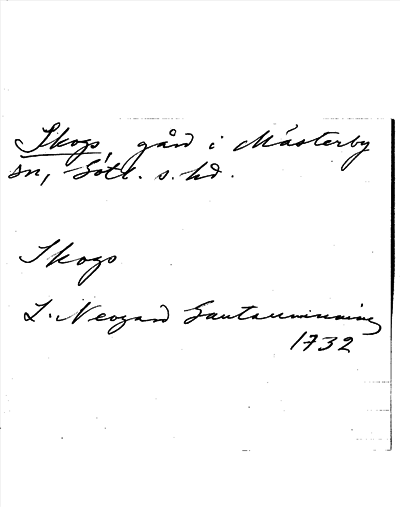 Skogs, gård i Mästerby
sn, Gotl. s. hd.
Skogs
L. Neogard Gautauminning
1732